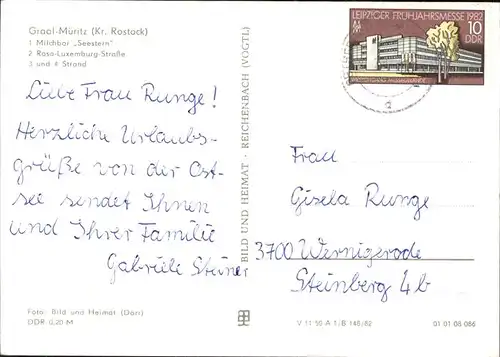 Graal-Müritz (Kr. Rostock)
1 Milchbar „Seestern"
2 Rosa-Luxemburg-Straße
3 und 4 Strand
Liebe Frau Runge!
Herzliche Urlaubs-
grüße von der Ost-
see sendet Ihnen
und Ihrer Familie
Gabriele Steiner
Foto: Bild und Heimat (Dörr)
DDR 0,20 M
BILD UND HEIMAT · REICHENBACH (VOGTL)
LEIPZIGER FRÜHJAHRSMESSE 1982
10
DDR
Frau
Gisela Runge
3700 Wernigerode
Steinberg 4b
V 11 50 A 1/B 146/82
01 01 06 086